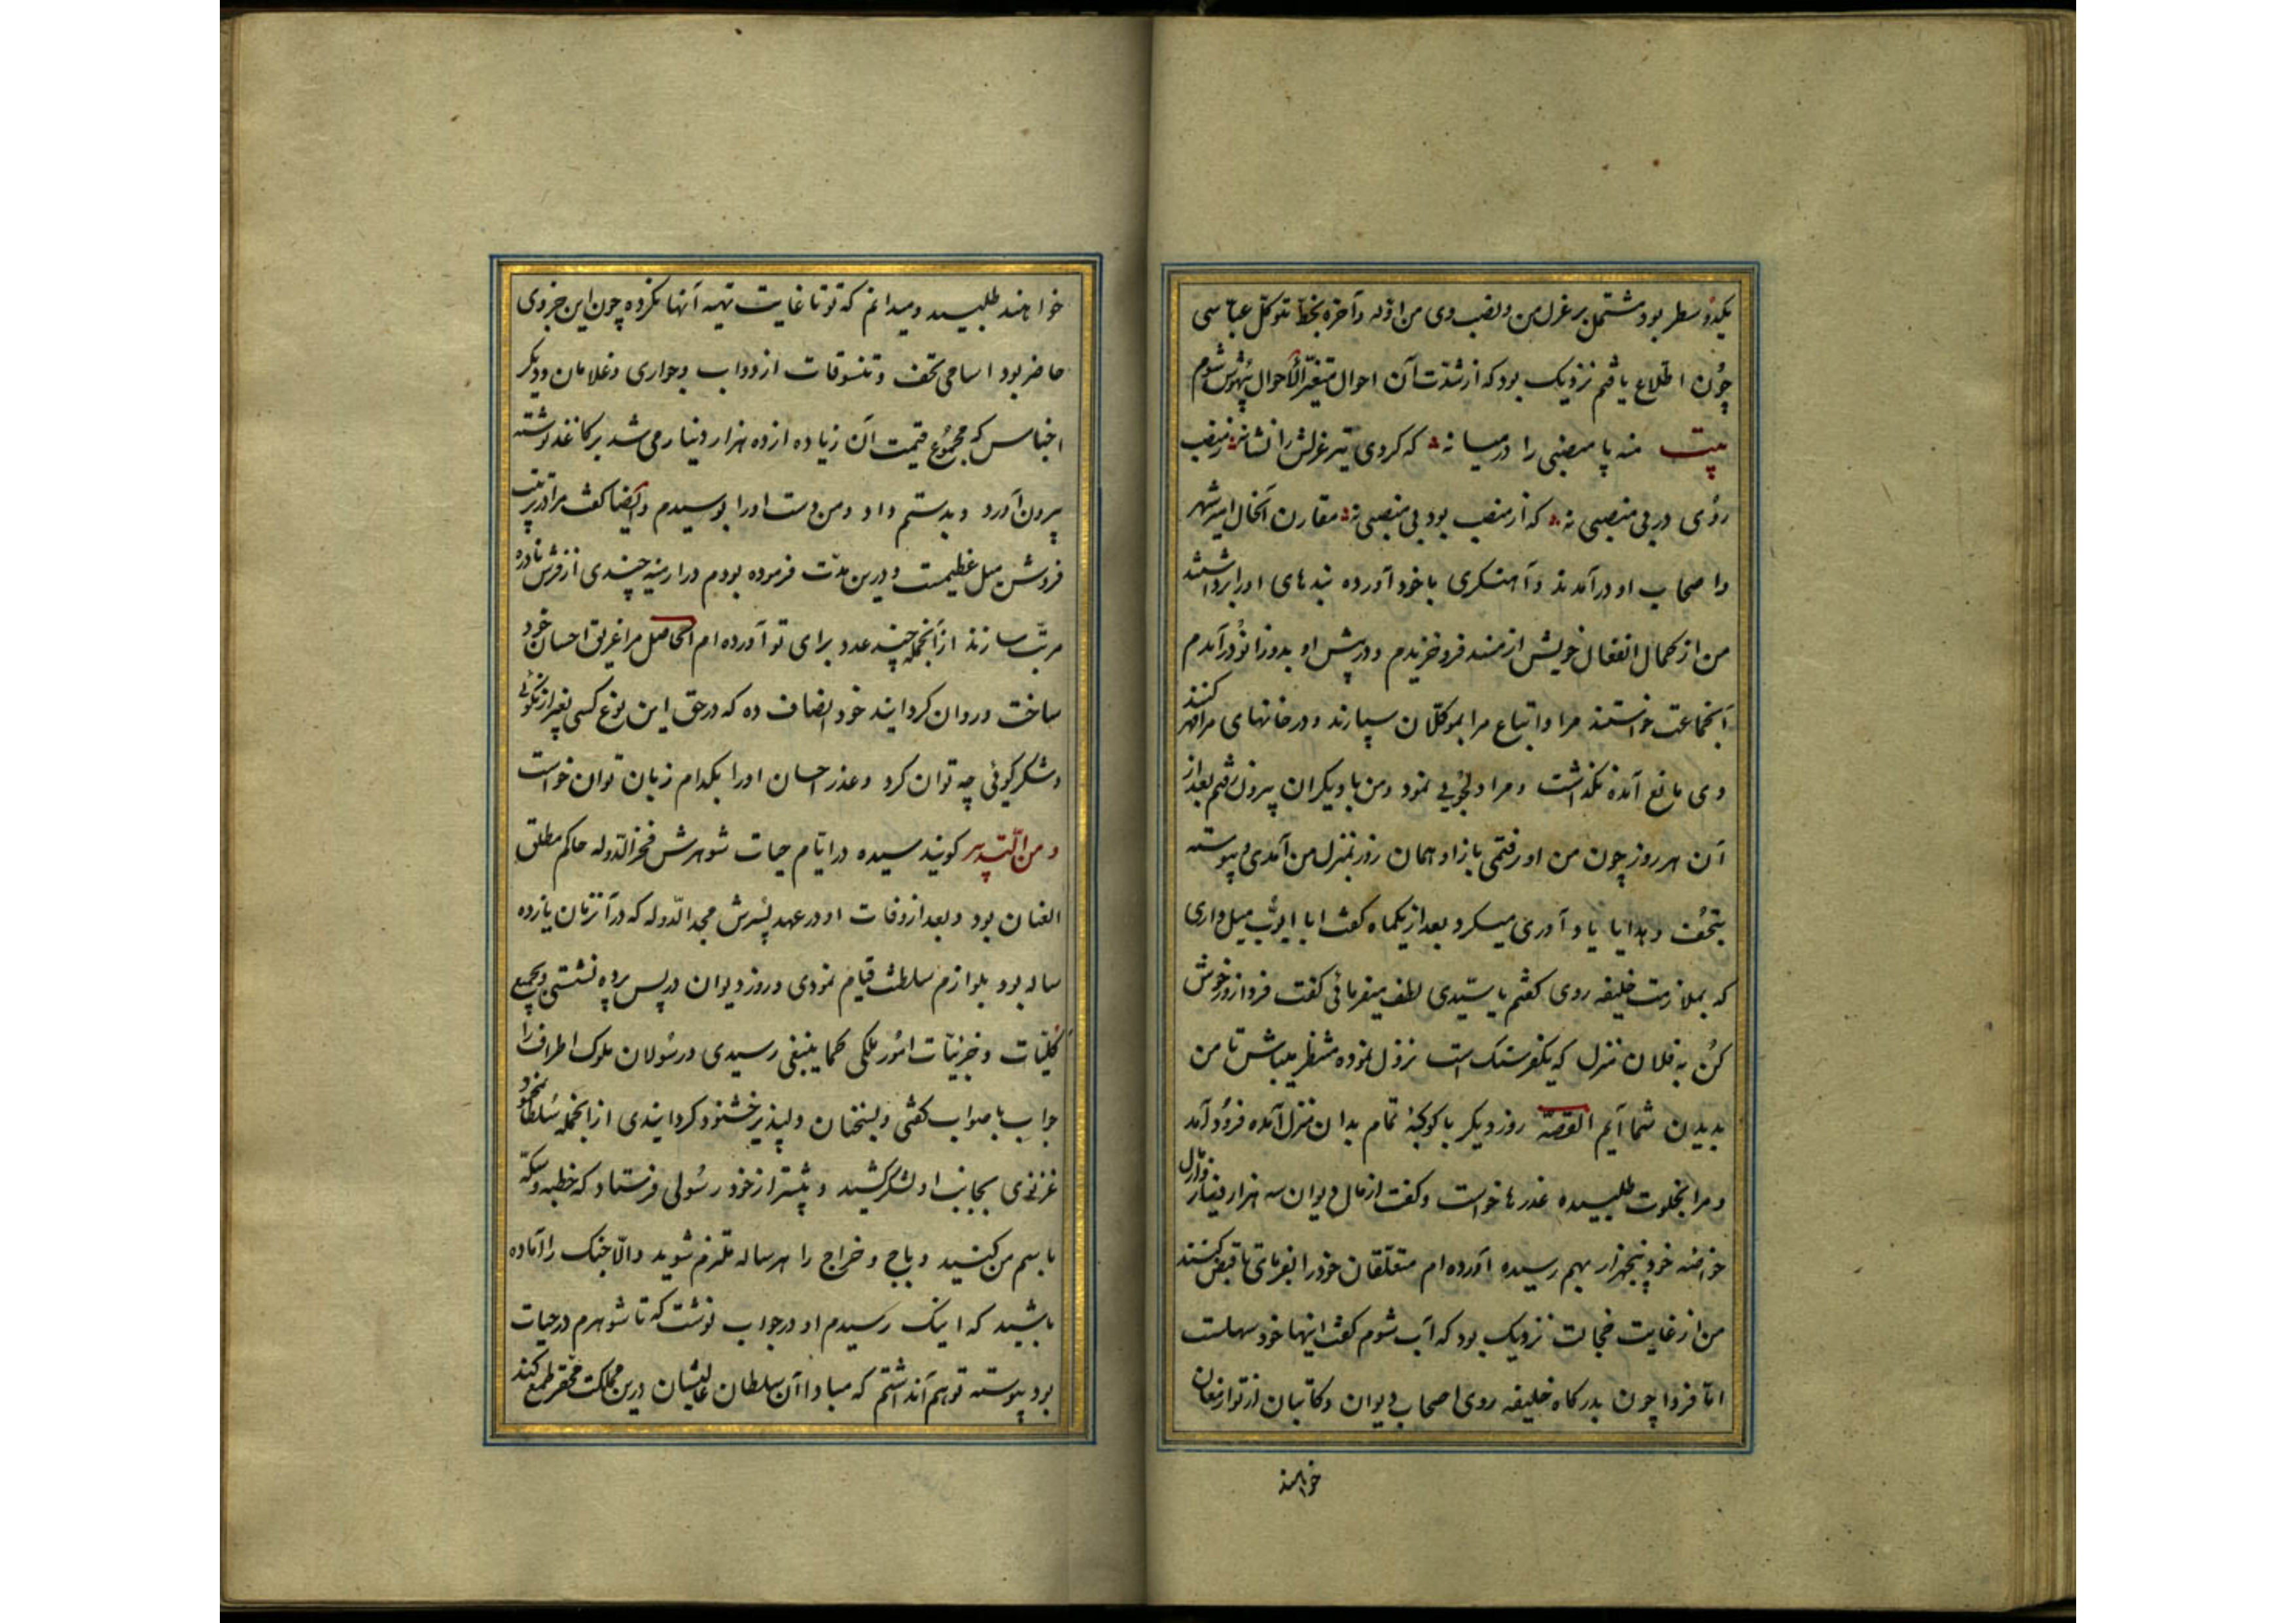 یکدو سطر بود مشتمل بر عزل من و نصب وی من اوله و آخره بخط متوکل عباسی
چون اطلاع یافتم نزدیک بود که از شدت آن احوال متغیر الأحوال بیهوش شوم
بیت منه پا منصبی را در میانه که کردی تیر عزلش را نشانه ز منصب
روی در بی منصبی نه که از منصب بود بی منصبی به مقارن آنحال امیر شهر
و اصحاب او درآمدند و آهنگری با خود آورده بندهای او را برداشتند
من از کمال انفعال خویش از مسند فرو خزیدم و در پیش او بدو زانو درآمدم
آنجماعت خواستند مرا و اتباع مرا بموکلان سپارند و در خانهای مرا مهر کنند
وی مانع آمده نگذاشت و مرا دلجویی نمود و من با دیگران بیرون رفتم بعد از
آن هر روز چون من او رفتمی باز او همان روز بمنزل من آمدی و پیوسته
بتحف و هدایا یاد آوری میکرد بعد از یکماه گفت ابا ایوب میل داری
که بملازمت خلیفه روی گفتم یا سیدی لطف میفرمائی گفت فردا زود خوش
کن به فلان منزل که یکفرسنگ است نزول نموده منتظر میباش تا من
بدیدن شما آیم القصه روز دیگر با کوکبهٔ تمام بدان منزل آمده فرود آمد
و مرا بخلوت طلبیده عذرها خواست و گفت از مال دیوان سه هزار دینار و از مال
خواصه خود پنجهزار بهم رسیده آورده ام متعلقان خود را بفرمای تا قبض کنند
من از غایت خجالت نزدیک بود که آب شوم گفت اینها خود سهلست
اما فردا چون بدرگاه خلیفه روی اصحاب دیوان و کاتبان از تو ارمغان
خواهند
خواهند طلبید و میدانم که تو تا غایت تهیه آنها نکرده چون این جزوی
حاضر بود اسامی تحف و تنسوقات از دواب و جواری و غلامان و دیگر
اجناس که مجموع قیمت آن زیاده از ده هزار دینار می شد بر کاغذ نوشته
بیرون آورد و بدستم داد و من دست او را بوسیدم و ایضا گفت مرا در ترتیب
فروش میل عظیمست و درین مدت فرموده بودم در ارمنیه چندی از فرش نادره
مرتب سازند از آنجمله چند عدد برای تو آورده ام الحاصل مرا غریق احسان خود
ساخت و روان گردانید خود انصاف ده که در حق این نوع کسی بغیر از نکوئی
و شکر گوئی چه توان کرد و عذر احسان او را بکدام زبان توان خواست
و من التدبیر گویند سیده در ایام حیات شوهرش فخر الدوله حاکم مطلق
العنان بود و بعد از وفات او در عهد پسرش مجد الدوله که در آنزمان یازده
ساله بود بلوازم سلطنت قیام نمودی و روز دیوان در پس پرده نشستی و بجمیع
کلیات و جزئیات امور ملکی کما ینبغی رسیدی و رسولان ملوک اطراف را
جواب با صواب گفتی و بسخنان دلپذیر خشنود گردانیدی از انجمله سلطان محمود
غزنوی بجانب او لشکر کشید و پیشتر از خود رسولی فرستاد که خطبه و سکه
باسم من کنید و باج و خراج را هر ساله ملتزم شوید و الا جنگ را آماده
باشید که اینک رسیدم او در جواب نوشت که تا شوهرم در حیات
بود پیوسته توهم آنداشتم که مبادا آن سلطان عالیشان درین مملکت محقر طمع کند